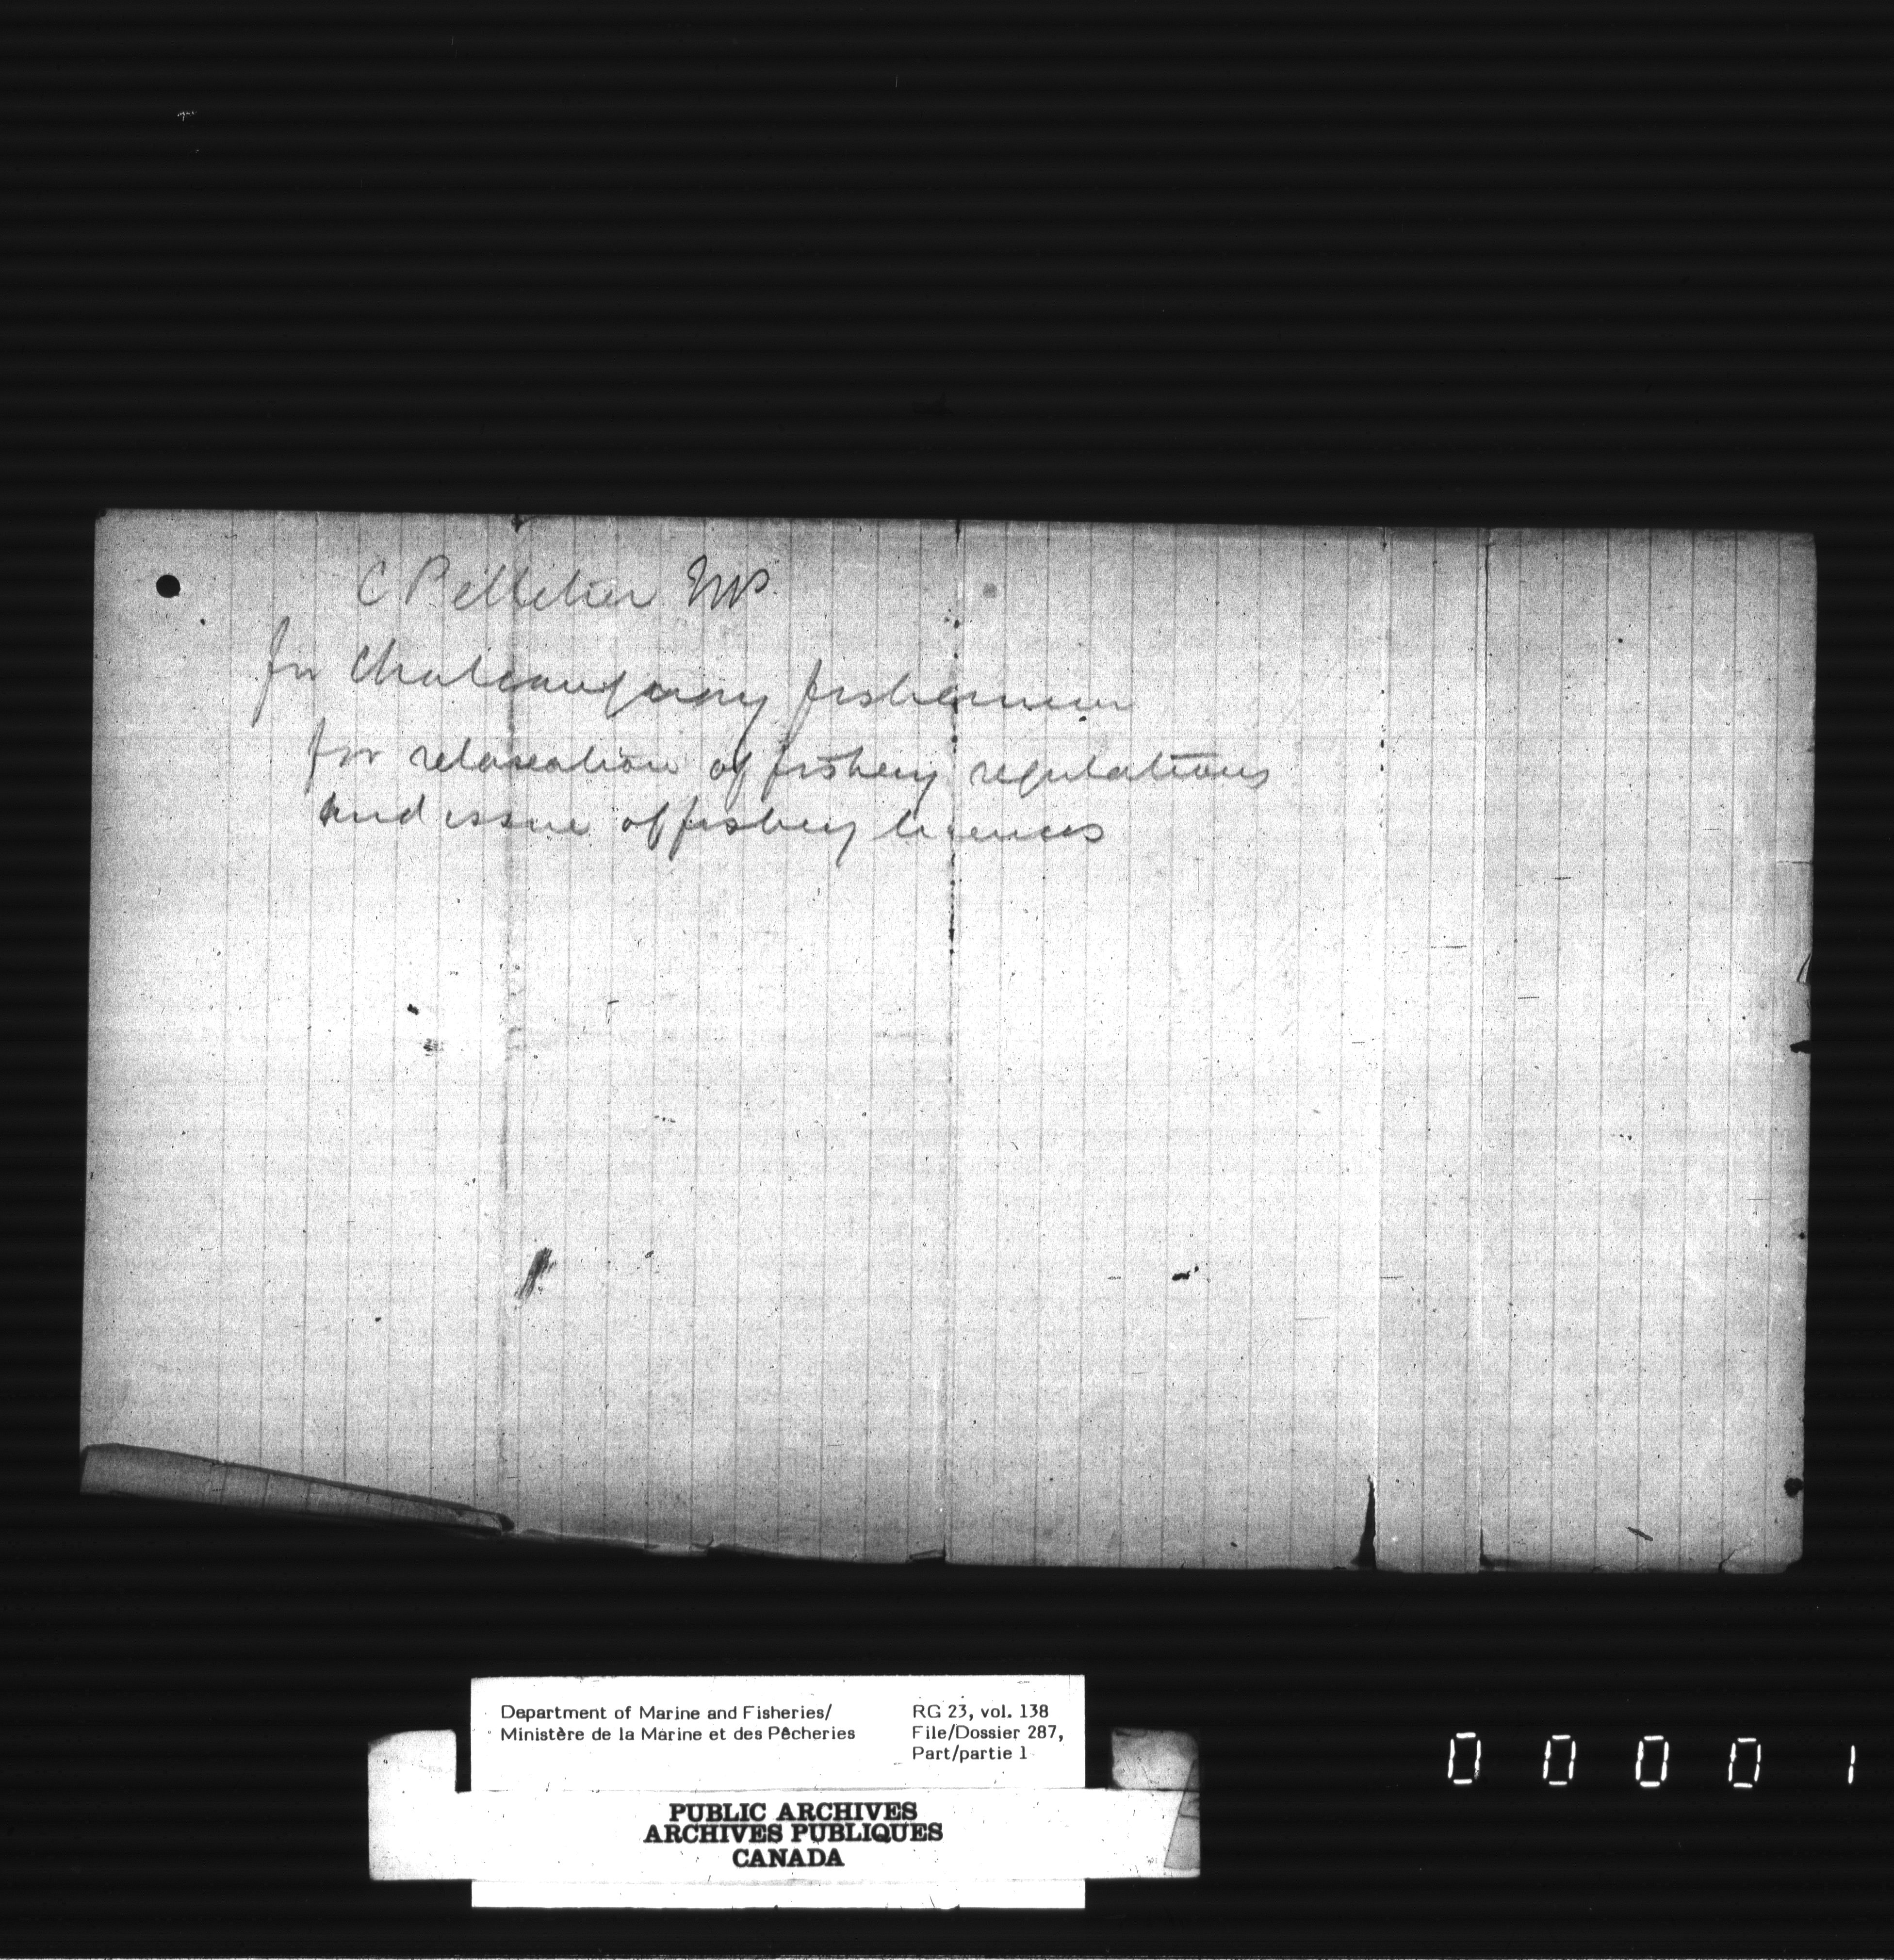 C Pelletier MP.
for Chateauguay fishermen
for relaxation of fishery regulations
and issue of fishery licenses
Department of Marine and Fisheries/
Ministère de la Marine et des Pêcheries
RG 23, vol. 138
File/Dossier 287,
Part/partie 1
PUBLIC ARCHIVES
ARCHIVES PUBLIQUES
CANADA
0 0 0 0 1